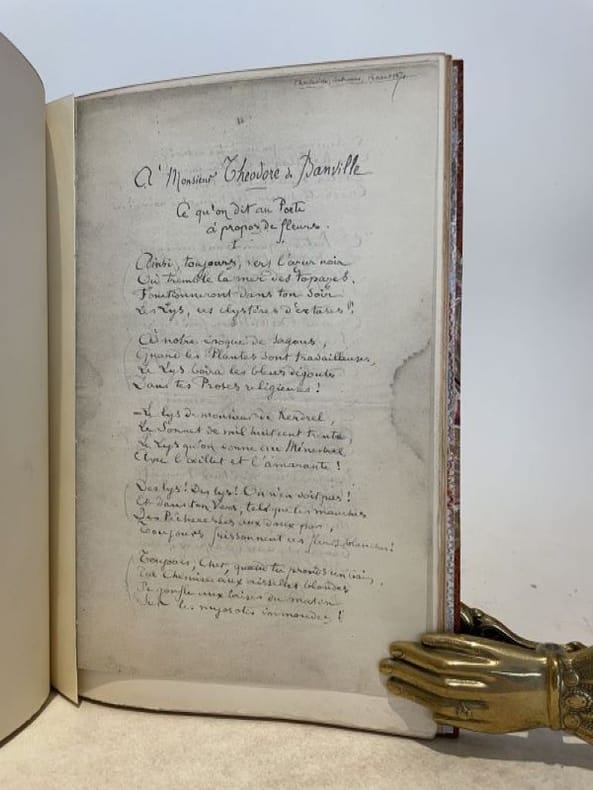 À Monsieur Théodore de Banville
Ce qu'on dit au Poète
à propos de fleurs.
I
Ainsi, toujours, vers l'azur noir
Où tremble la mer des topazes,
Fonctionneront dans ton soir
Les Lys, ces clystères d'extases !
À notre époque de sagous,
Quand les Plantes sont travailleuses,
Le Lys boira les bleus dégoûts
Dans tes Proses religieuses !
– Le lys de monsieur de Kerdrel,
Le Sonnet de mil huit cent trente,
Le Lys qu'on donne au Ménestrel
Avec l'œillet et l'amarante !
Des lys ! Des lys ! On n'en voit pas !
Et dans ton Vers, tel que les manches
Des Pécheresses aux doux pas,
Toujours frissonnent ces fleurs blanches !
Toujours, Cher, quand tu prends un bain,
Ta Chemise aux aisselles blondes
Se gonfle aux brises du matin
Sur les myosotis immondes !